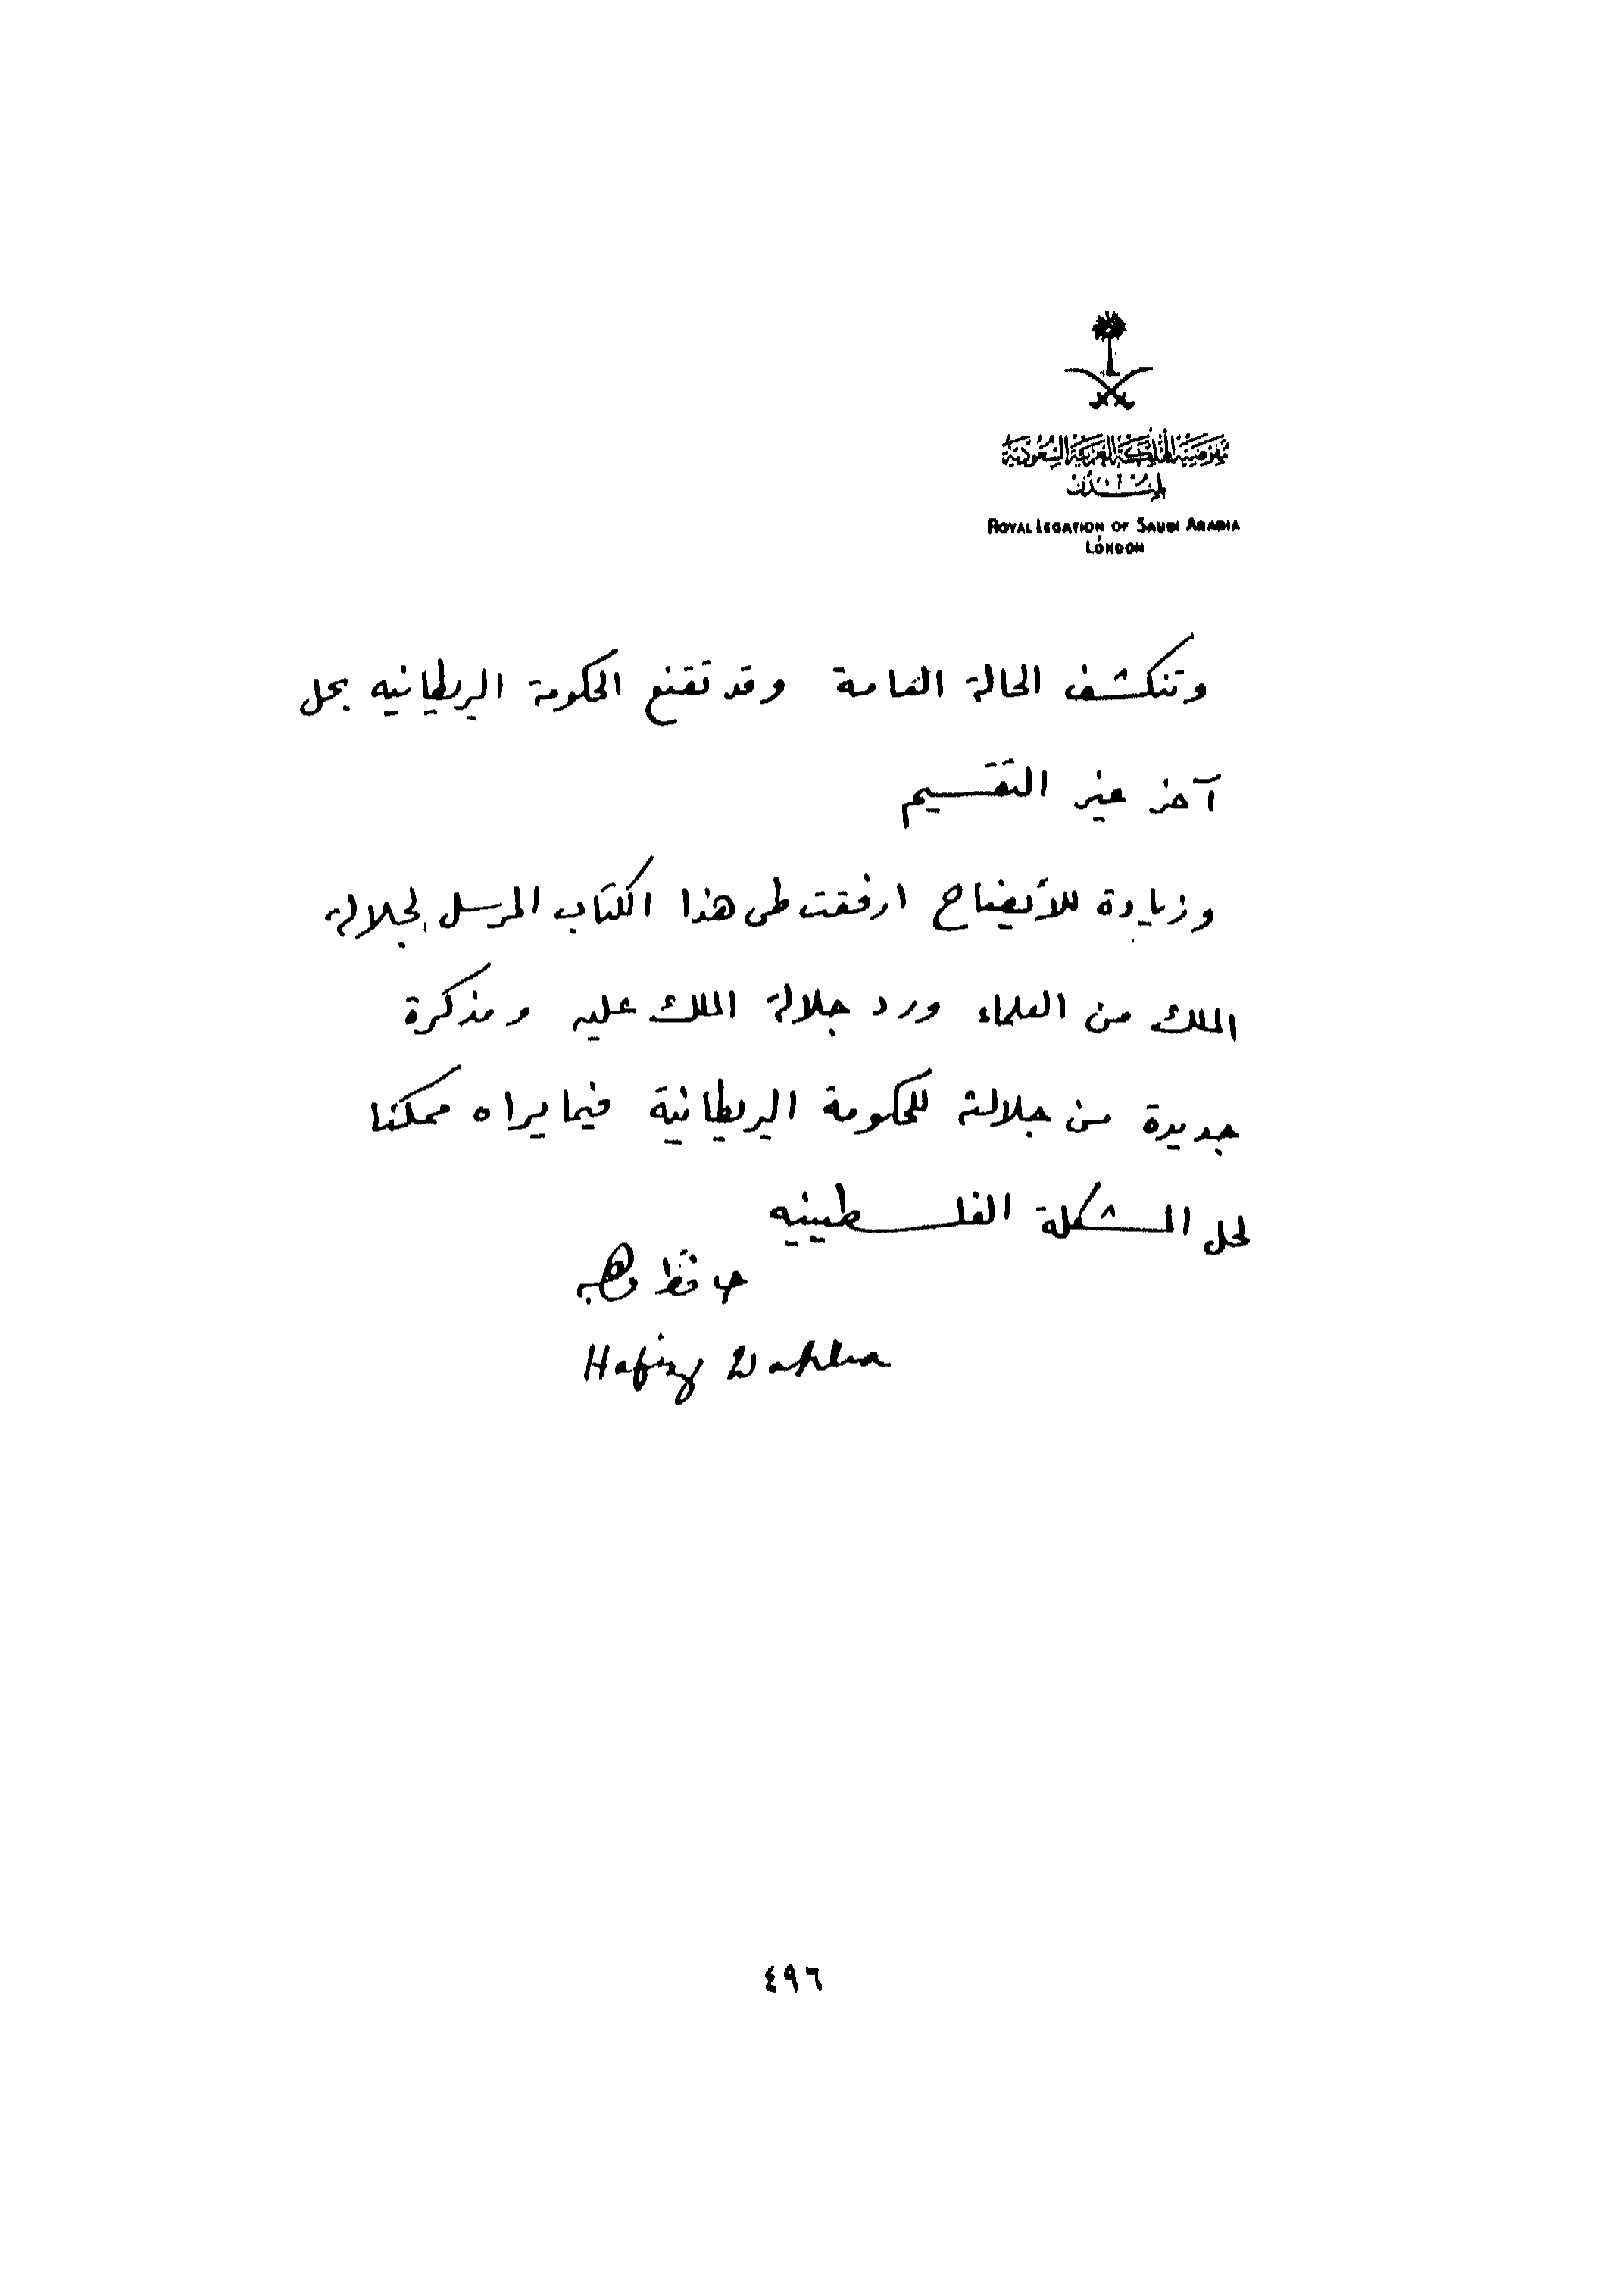 مفوضية المملكة العربية السعودية
بلندن
ROYAL LEGATION OF SAUDI ARABIA
LONDON
وتنكشف الحالة العامة وقد تقنع الحكومة البريطانيه بحل
آخر غير التقسيم
وزيادة للأيضاح ارفقت طى هذا الكتاب المرسل لجلالة
الملك من العلماء ورد جلالة الملك عليه ومذكرة
جديدة من جلالته للحكومة البريطانية فيما يراه ممكنا
لحل المشكلة الفلسطينيه
حافظ وهبه
Hafiz Wahba
٤٩٦